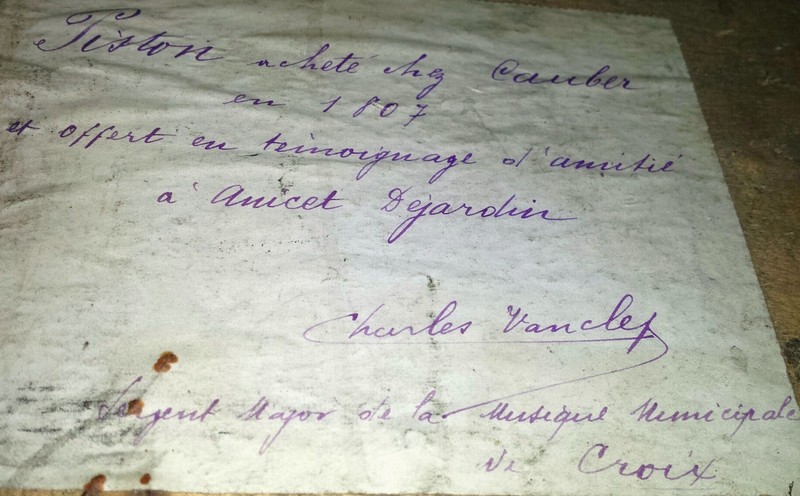 Piston acheté chez Cauber
en 1807
et offert en témoignage d'amitié
à Anicet Déjardin
Charles Vanclef
Sergent Major de la Musique Municipale
de Croix